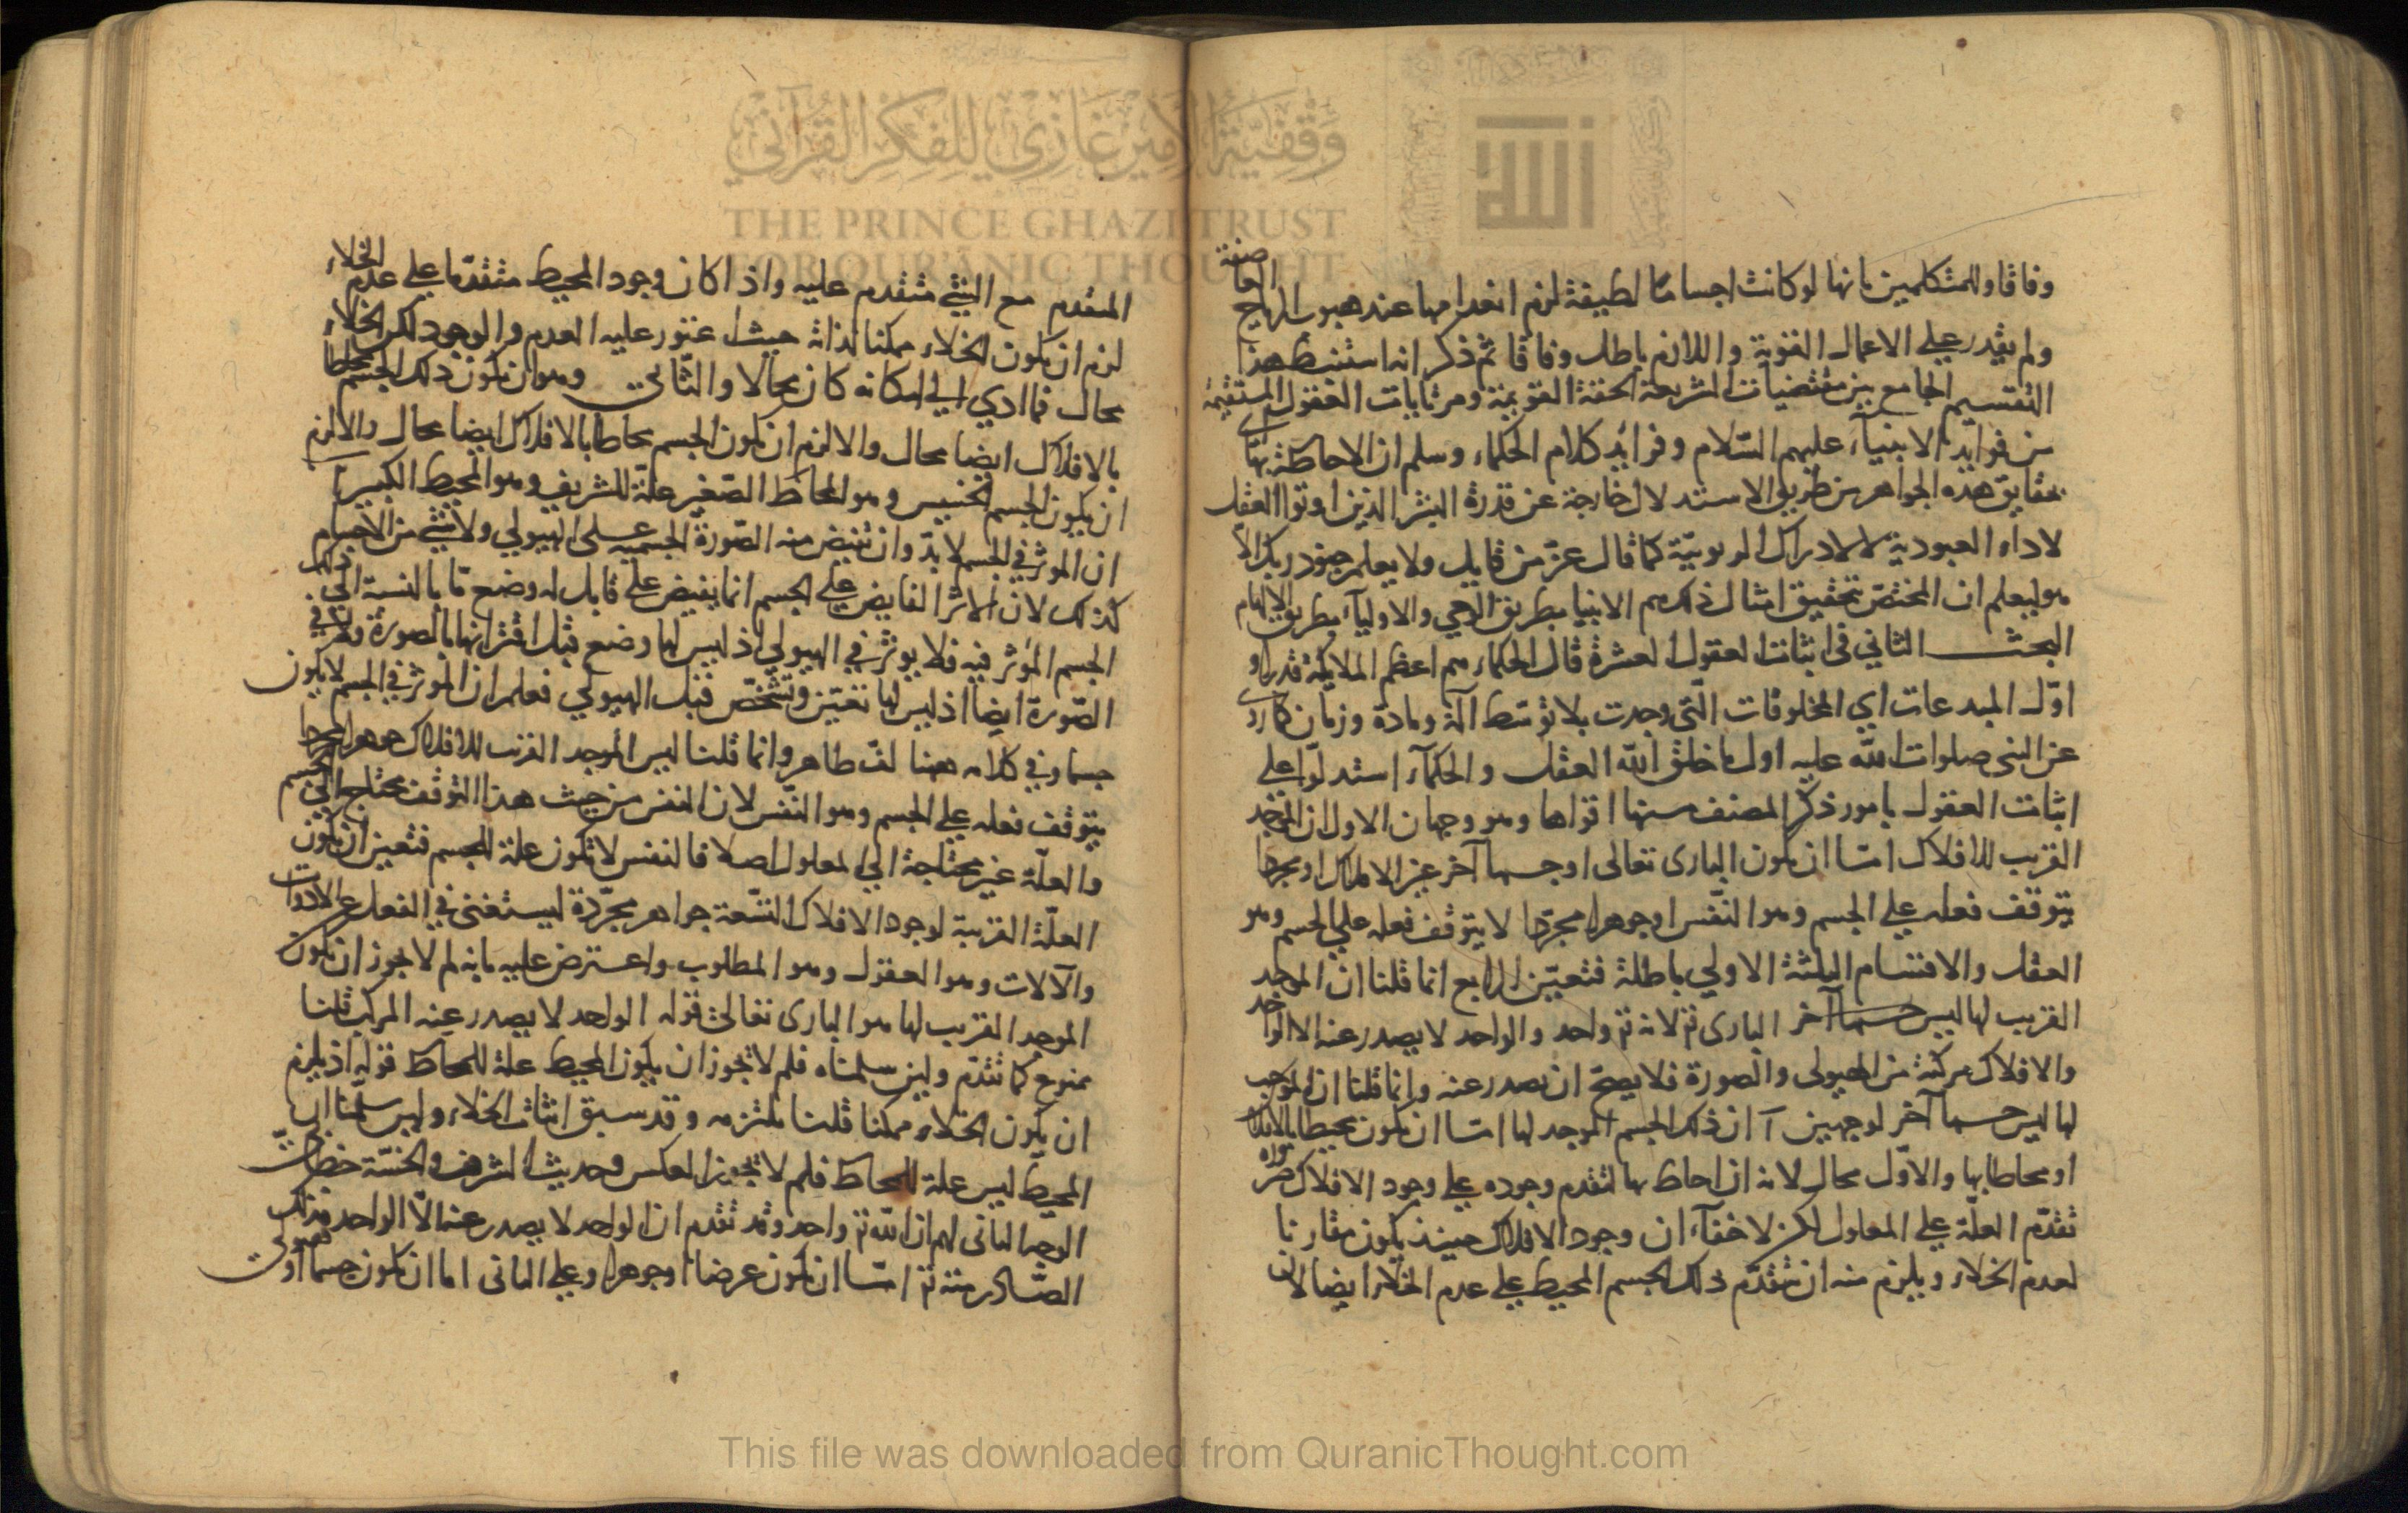 وفاقا والمتكلمين بانها لو كانت اجساما لطيفة لزم انعدامها عند هبوب الرياح العاصفة
ولم يقدر على الاعمال القوية واللازم باطل وفاقا ثم ذكر انه استنبط هذا
التقسيم الجامع بين مقتضيات الشريعة الحقة القويمة ومرتايات العقول المستقيمة
من فوايد الانبياء عليهم السلام وفرايد كلام الحكماء وسلم ان الاحاطة بها اى
بحقايق هذه الجواهر من طريق الاستدلال خارجة عن قدرة البشر الذين اوتوا العقل
لاداء العبودية لا لادراك الربوبية كما قال عز من قايل ولا يعلم جنود ربك الا
هو ليعلم ان المختص بتحقيق امثال ذلك هم الانبيا بطريق الوحي والاوليآء بطريق الالهام
البحث الثاني فى اثبات العقول العشرة قال الحكماء هم اعظم الملايكة قدرا و
اول المبدعات اي المخلوقات التى وجدت بلا توسط آلة ومادة وزمان كما روى
عن النبى صلوات الله عليه اول ما خلق الله العقل والحكمآء استدلوا على
اثبات العقول بامور ذكر المصنف منها اقواها وهو وجهان الاول ان الموجد
القريب للافلاك امّا ان يكون البارى تعالى او جسما آخر غير الافلاك او مجردا
يتوقف فعله على الجسم وهو النفس او جوهرا مجردا لا يتوقف فعله على الجسم وهو
العقل والاقسام الثلثة الاولى باطلة فتعيّن الرابع انما قلنا ان الموجد
القريب لها ليس جسما آخر البارى تم لانه تم واحد والواحد لا يصدر عنه الا الواحد
والافلاك مركبة من الهيولى والصورة فلا يصح ان يصدر عنه وانما قلنا ان الموجب
لها ليس جسما آخر لوجهين آ ان ذلك الجسم الموجد لها امّا ان يكون محيطا بالافلاك
او محاطا بها والاول محال لانه ان احاط بها لتقدم وجوده على وجود الافلاك ضرورة
تقدّم العلّة على المعلول لكن لا خفآء ان وجود الافلاك حينئذ يكون مقارنا
لعدم الخلاء ويلزم منه ان يتقدّم ذلك الجسم المحيط على عدم الخلاء ايضا لان
المتقدم مع الشئ متقدم عليه واذا كان وجود المحيط متقدما على عدم الخلاء
لزم ان يكون الخلاء ممكنا لذاته حيث اعتور عليه العدم والوجود لكن الخلاء
محال فما ادي الي امكانه كان محالا والثاني وهو ان يكون ذلك الجسم محاطا
بالافلاك ايضا محال والا لزم ان يكون الجسم محاطا بالافلاك ايضا محال والا لزم
ان يكون الجسم الخسيس وهو المحاط الصغير علّة للشريف وهو المحيط الكبير آ
ان الموثر في الجسم لا بدّ وان تفيض منه الصّورة الجسمية على الهيولي ولا شئ من الاجسام
كذلك لان الاثر الفايض على الجسم انما يفيض على قابل له وضع مّا بالنسبة الى ذلك
الجسم المؤثر فيه فلا يوثر في الهيولي اذ ليس لها وضع قبل اقترانها بالصورة ولا في
الصّورة ايضا اذ ليس لها تعيّن وتشخّص قبل الهيولي فعلم ان المؤثر في الجسم لا يكون
جسما وفي كلامه ههنا لفّ ظاهر وانما قلنا ليس الموجد القريب للافلاك جوهرا مجردا
يتوقف فعله على الجسم وهو النّفس لان النفس من حيث هذا التوقف محتاج الى الجسم
والعلّة غير محتاجة الي المعلول اصلا فالنفس لا تكون علة للجسم فتعين ان يكون
العلّة القريبة لوجود الافلاك التسّعة جواهر مجرّدة ليستغنى في الفعل عن الادوات
والآلات وهو العقول وهو المطلوب واعترض عليه بانه لم لا يجوز ان يكون
الموجد القريب لها هو البارى تعالى قوله الواحد لا يصدر عنه المركب قلنا
ممنوع كما تقدّم ولين سلمناه فلم لا يجوز ان يكون المحيط علة للمحاط قوله اذ يلزم
ان يكون الخلاء ممكنا قلنا نلتزمه وقد سبق اثبات الخلاء ولين سلّمنا ان
المحيط ليس علة للمحاط فلم لا يجوز العكس وحديث الشرف والخسّة خطابيّ
الوجه الثانى لهم ان الله تم واحد وقد تقدم ان الواحد لا يصدر عنه الّا الواحد فذلك
الصّادر منه تم امّا ان يكون عرضا او جوهرا وعلى الثانى اما ان يكون جسما او هيولى
وقفية الأمير غازي للفكر القرآني
THE PRINCE GHAZI TRUST
FOR QUR'ANIC THOUGHT
This file was downloaded from QuranicThought.com